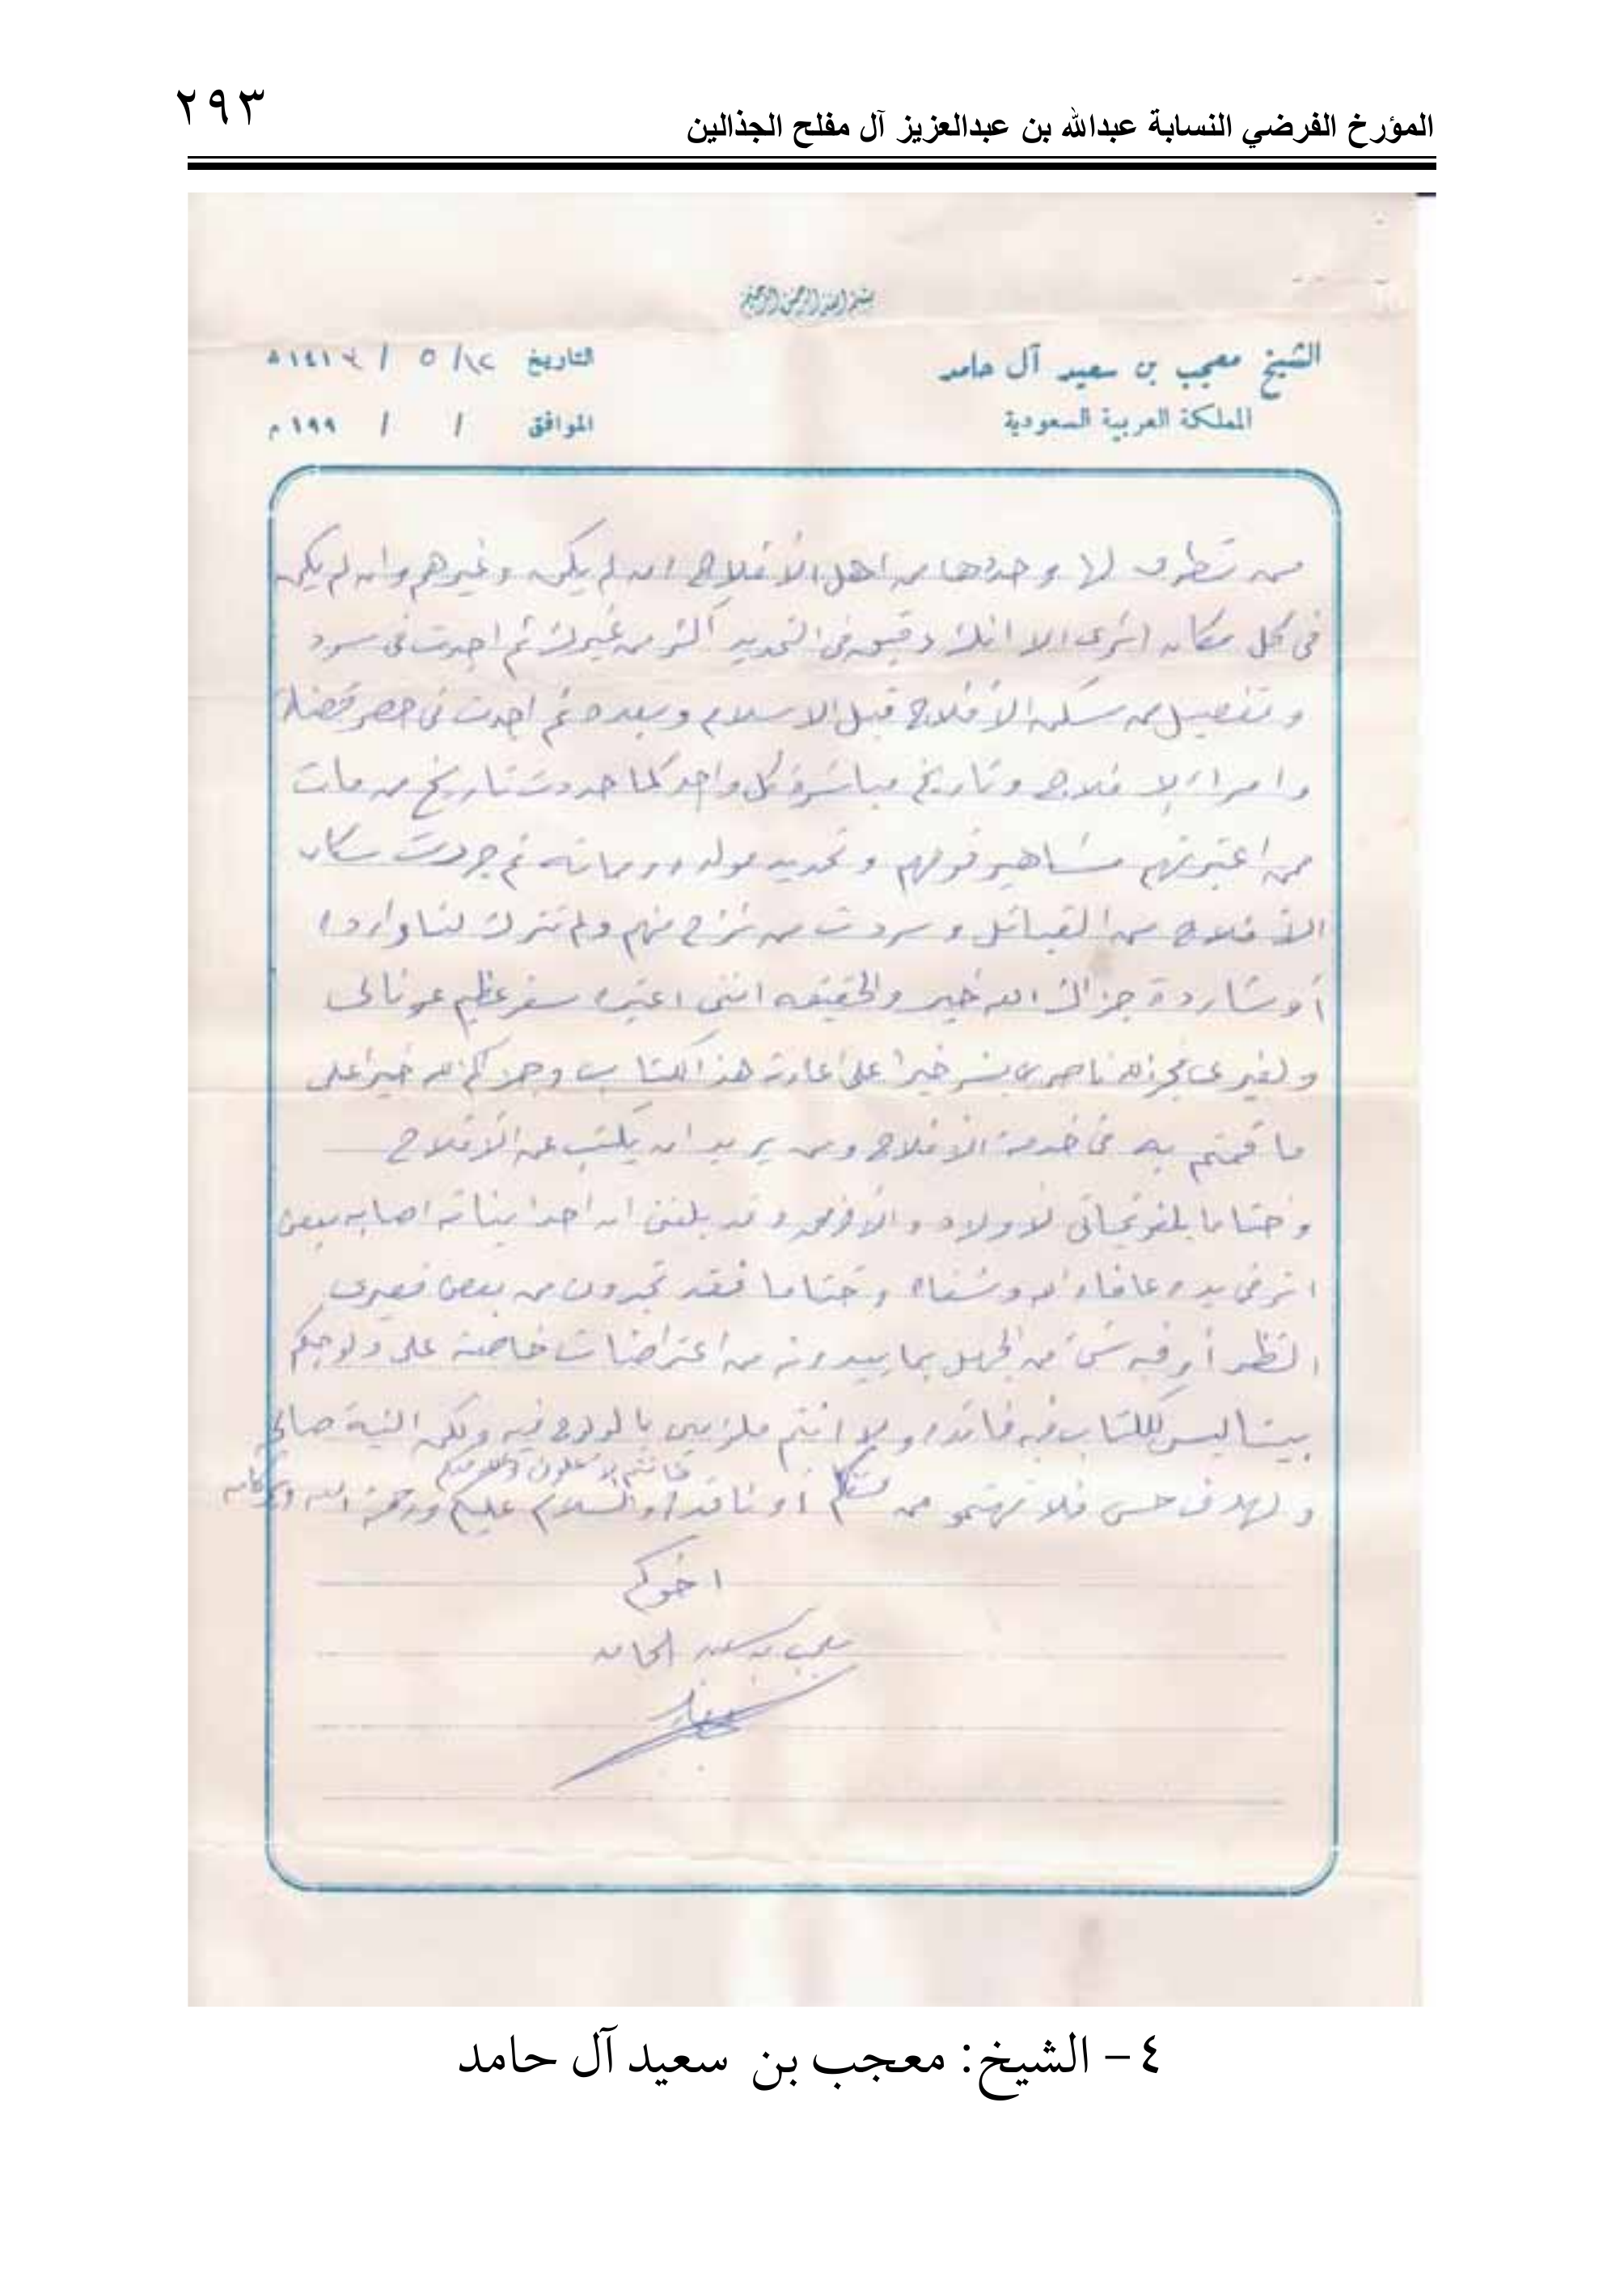 المؤرخ الفرضي النسابة عبدالله بن عبدالعزيز آل مفلح الجذالين
٢٩٣
بسم الله الرحمن الرحيم
الشيخ معجب بن سعيد آل حامد
المملكة العربية السعودية
التاريخ ١٢/ ٥ / ١٤١٣هـ
الموافق / / ١٩٩م
من تطرق لها وحددها من اهل الأفلاج ان لم يكن وغيرهم وان لم يكن
في كل مكان اثرى الا انك دقيق في التحديد أكثر من غيرك ثم اجدت في سرد
و تفصيل من سكن الأفلاج قبل الاسلام وبعده ثم اجدت في حصر قضاة
وامراء الافلاج وتاريخ مباشرة كل واحد كما حددت تاريخ من مات
ممن اعتبرتهم مشاهير قومهم وتحديد مولده ومماته ثم جردت سكان
الأفلاج من القبائل وسردت من نزح منهم ولم تترك لنا واردة
أو شاردة جزاك الله خير والحقيقه انني اعتبره سفر عظيم عونا لي
ولغيري فجزا الله ناصر بن خيرا على اعارة هذا الكتاب وجزاكم الله خيرا على
ما قمتم به في خدمة الأفلاج ومن يريد ان يكتب عن الأفلاج
وختاما بلغو تحياتي لأولاد والأخ وقد بلغني ان احدا بناته اصابه بعض
اثر في يده عافاه الله وشفاه وختاما فقد تجدون من بعض قصيري
النظر أو فيه شيء من الجهل بما يبدونه من اعتراضات خاصة على ولوجكم
بيتا ليس للكتاب فيه فائدة ولا انتم ملزمين بالولوج فيه ولكن النية صالحة
والهدف حسن فلا تهتمو من متكلم أو ناقد فانتم الاعلون والله معكم والسلام عليكم ورحمة الله وبركاته
اخوكم
معجب بن سعيد الحامد
٤- الشيخ: معجب بن سعيد آل حامد